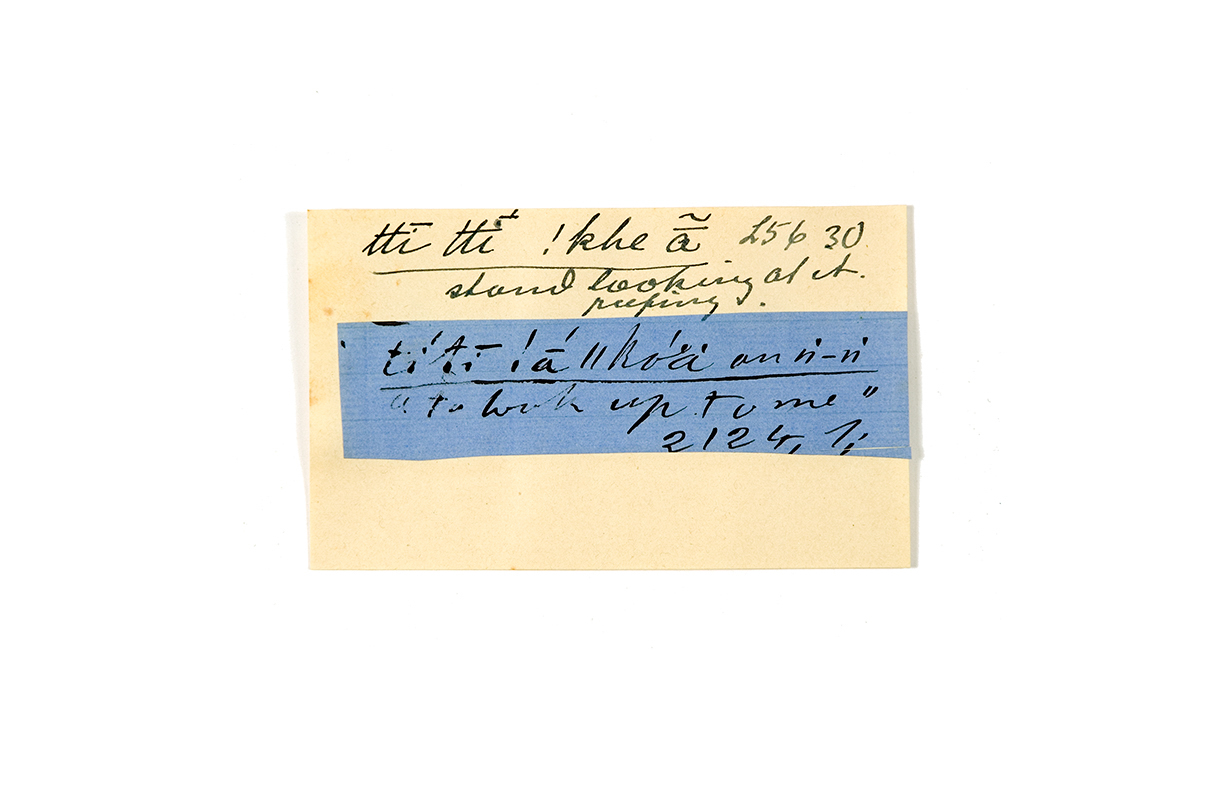 ttī ttí !khe ã̄ 2563O
stand looking at it.
peeping
tí tī !á ǁkó'ä on ń-ń
"to look up to me"
2124,